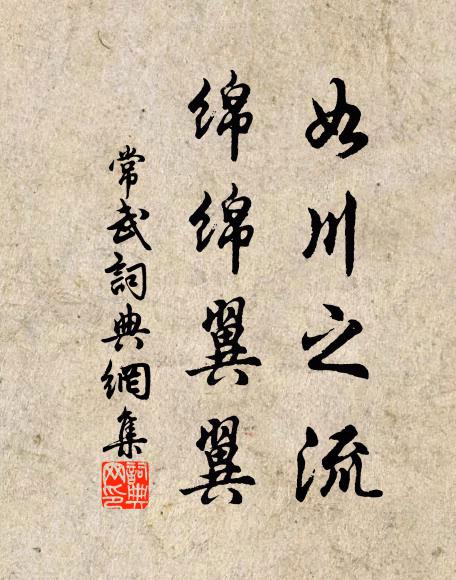 如川之流
绵绵翼翼
常武詞典網集
詞典网印